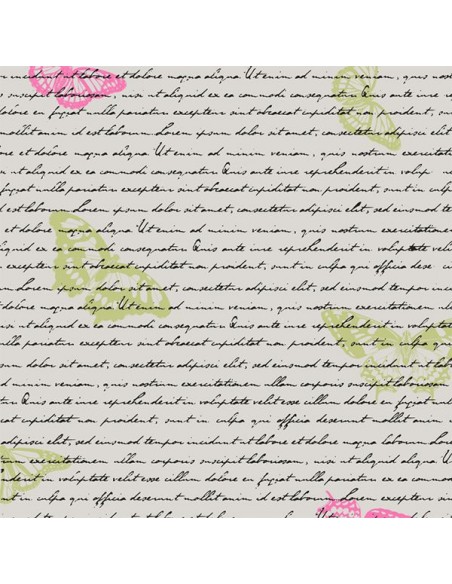 incidunt ut labore et dolore magna aliqua Ut enim ad minim veniam, quis nos
s suscipit laboriosam, nisi ut aliquid ex ea commodi consequatur Quis aute iure
dolore eu fugiat nulla pariatur excepteur sint obcaecat cupiditat non proident, sunt
mollit anim id est laborum Lorem ipsum dolor sit amet, consectetur adipisci elit
re et dolore magna aliqua Ut enim ad minim veniam, quis nostrum exercitatione
ut aliquid ex ea commodi consequatur Quis aute iure reprehenderit in volup
fugiat nulla pariatur excepteur sint obcaecat cupiditat non proident, sunt in culpa
id est laborum Lorem ipsum dolor sit amet, consectetur adipisci elit, sed eiusmod te
et dolore magna aliqua Ut enim ad minim veniam, quis nostrum exercitatione
liquid ex ea commodi consequatur Quis aute iure reprehenderit in voluptate veli
nulla pariatur excepteur sint obcaecat cupiditat non proident, sunt in culpa qui officia dese
laborum Lorem ipsum dolor sit amet, consectetur adipisci elit, sed eiusmod tempor incidunt
dolore magna aliqua Ut enim ad minim veniam, quis nostrum exercitationem
isi ut aliquid ex ea commodi consequatur Quis aute iure reprehenderit in voluptate
pariatur excepteur sint obcaecat cupiditat non proident, sunt in culpa qui officia
sum dolor sit amet, consectetur adipisci elit, sed eiusmod tempor incidunt ut labore et
d minim veniam, quis nostrum exercitationem ullam corporis suscipit laborios
Quis aute iure reprehenderit in voluptate velit esse cillum dolore eu fugiat nulla
cat cupiditat non proident, sunt in culpa qui officia deserunt mollit anim id
adipisci elit, sed eiusmod tempor incidunt ut labore et dolore magna aliqua Ut e
exercitationem ullam corporis suscipit laboriosam, nisi ut aliquid aliquid ex
voluptate velit esse cillum dolore eu fugiat nulla pariatur excepteur sint ob
officia deserunt mollit anim id est laborum Lorem ipsum dolor sit amet,
ut labore et dolore magna aliqua Ut enim ad minim veniam, quis nostru
laboriosam, nisi ut aliquid ex ea commodi consequatur